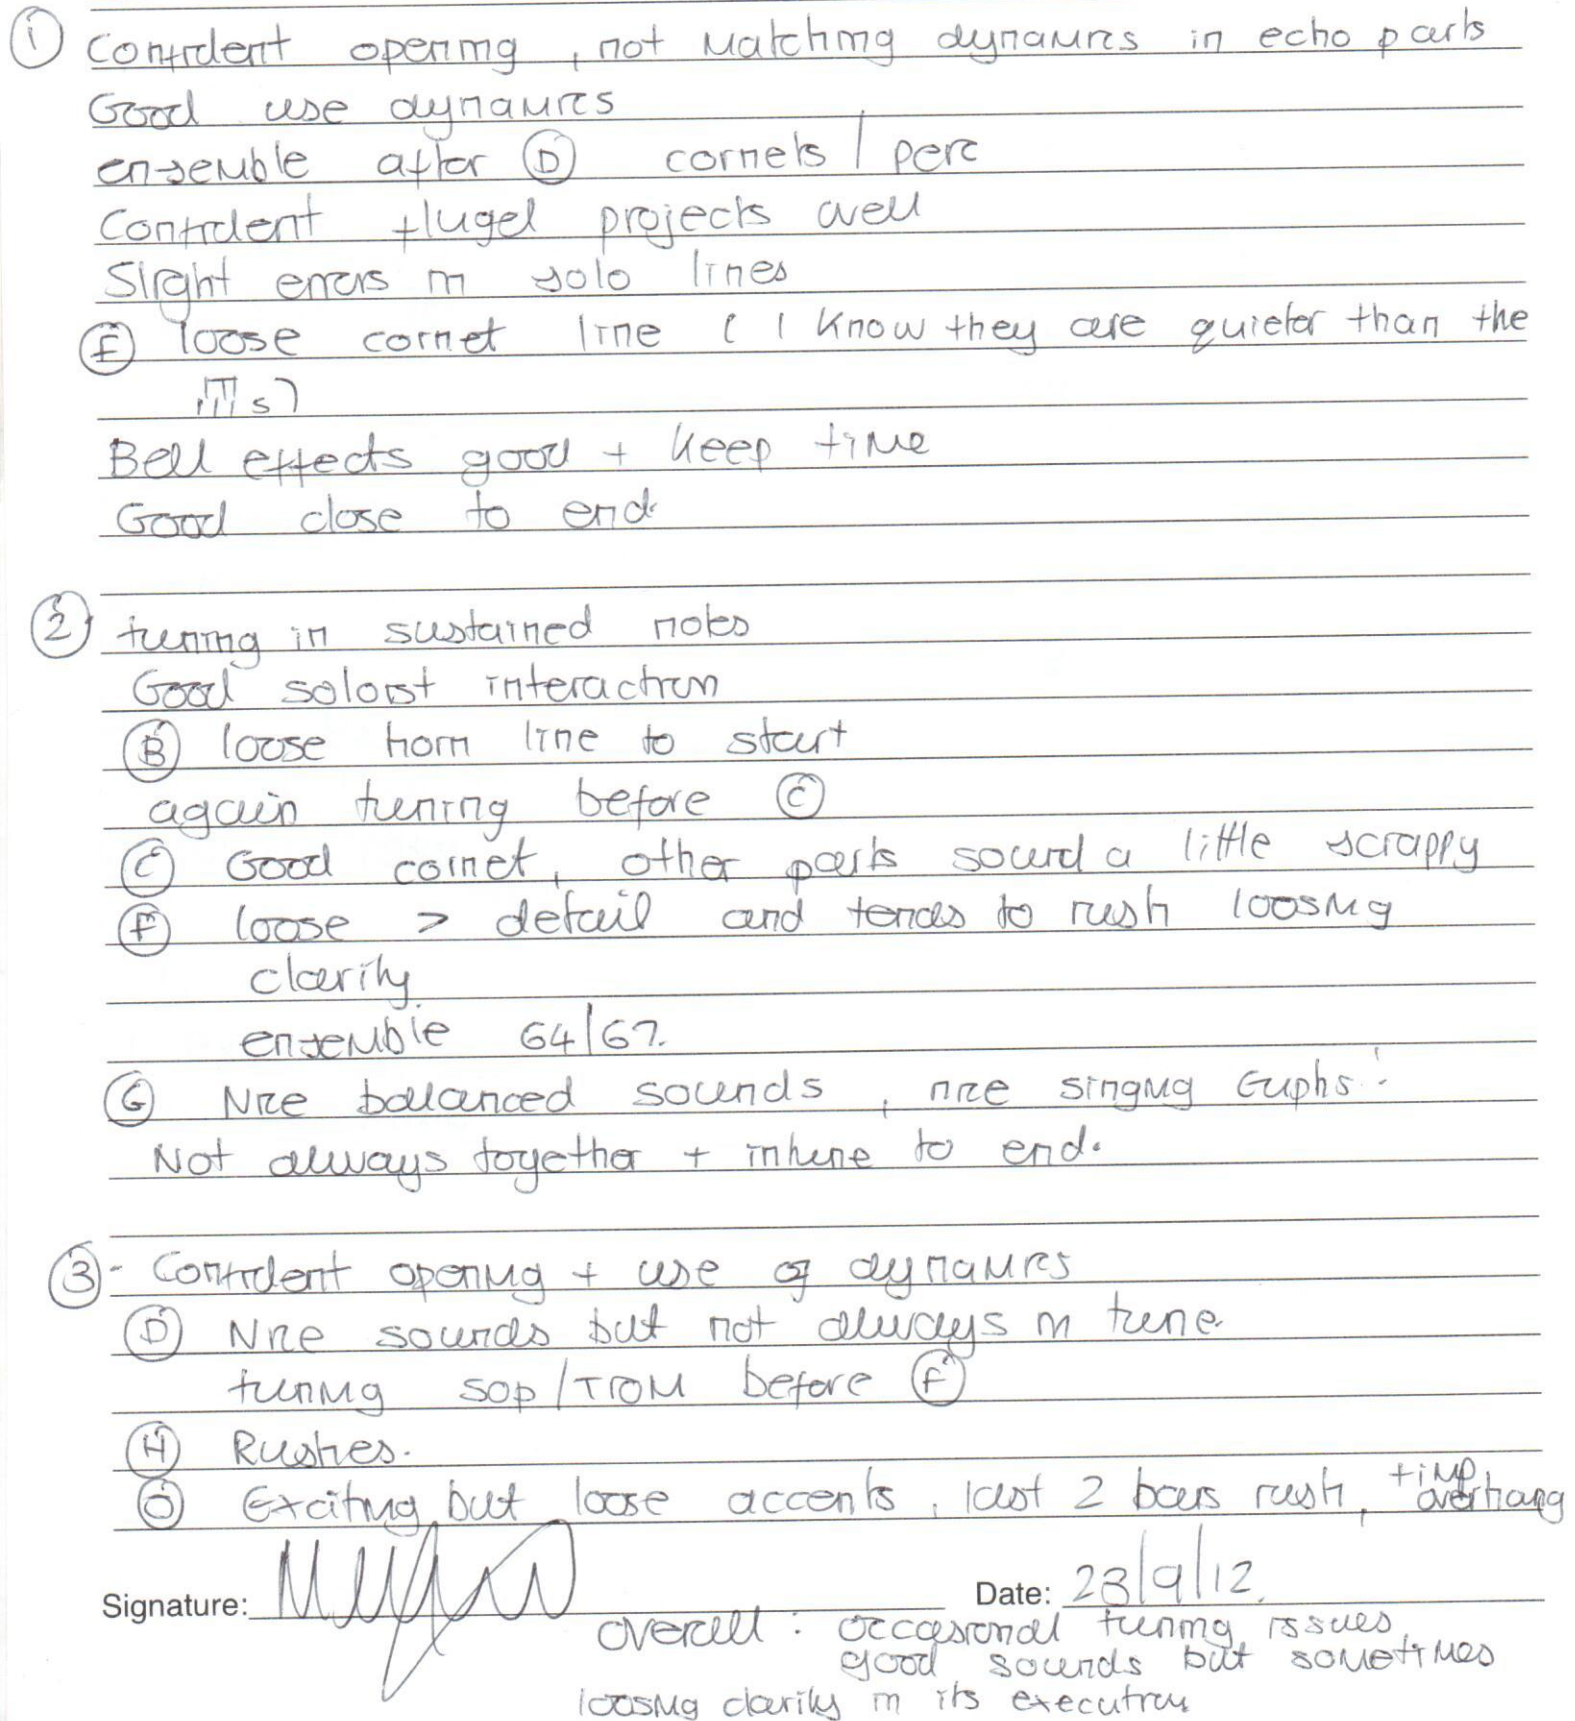 ① Confident opening, not matching dynamics in echo parts
Good use dynamics
ensemble after Ⓓ cornets / perc
Confident flugel projects well
Slight errors in solo lines
Ⓔ loose cornet line ( I know they are quieter than the
s)
Bell effects good + keep time
Good close to end.
② tuning in sustained notes
Good soloist interaction
Ⓑ loose horn line to start
again tuning before Ⓒ
Ⓒ Good cornet, other parts sound a little scrappy
Ⓕ loose > detail and tends to rush loosing
clarity.
ensemble 64/67.
Ⓖ Nice balanced sounds, nice singing Euphs.
Not always together + intune to end.
③ - Confident opening + use of dynamics
Ⓓ Nice sounds but not always in tune.
tuning sop/Trom before Ⓕ
Ⓗ Rushes.
Ⓞ Exciting but loose accents, last 2 bars rush, timp overhang
Signature: Date: 23/9/12.
overall : occasional tuning issues,
good sounds but sometimes
loosing clarity in its execution